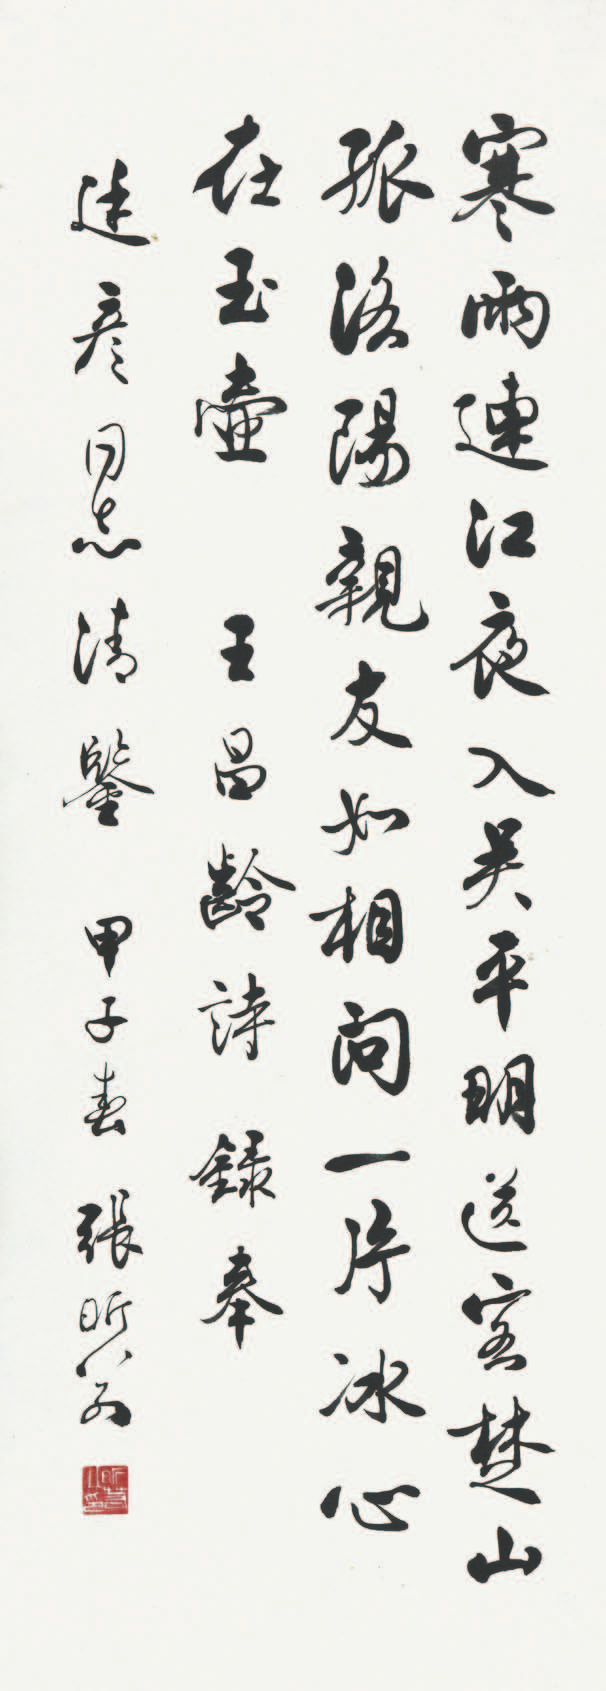 寒雨連江夜入吴平明送客楚山
孤洛陽親友如相問一片冰心
在玉壺 王昌齡詩 録奉
廷彦同志清鑒 甲子春 張昕若